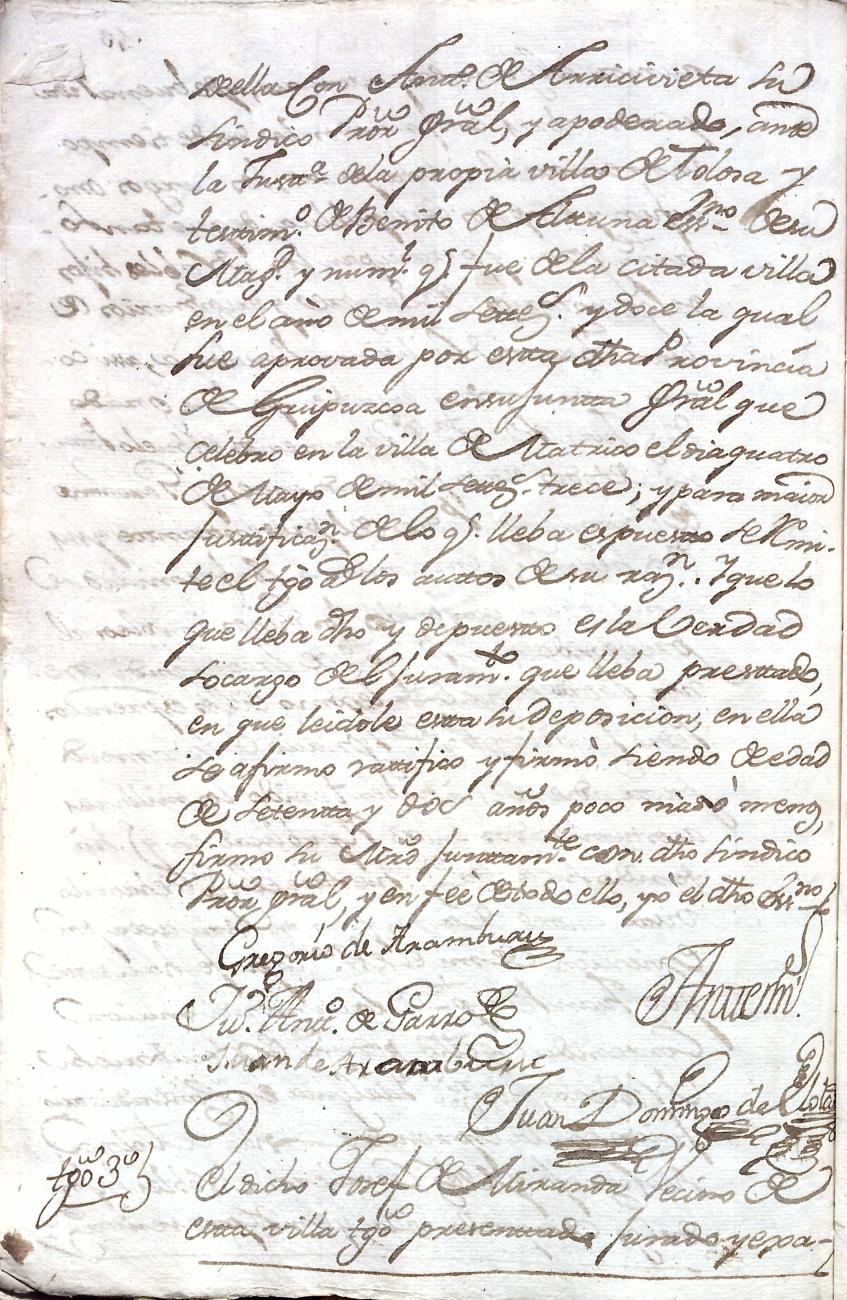 deella Con Antt.º de Arricivieta su
sindico Pror Grãl, y apoderado, ante
la Justt.ª dela propia villa de Tolosa y
testim.º de Benito de Altuna essno desu
Mag.d y num.º q.e fue dela citada villa
en el año de mil settes.s y doce la qual
fue aprovada por estta dha Provincia
de Guipuzcoa ensujuntta Grãl que
celebro en la villa de Motrico el dia quatro
de Mayo de mil settes.s trece; y para maior
justtificaz.n de lo q.e lleba espuesto se Rmi-
te el tgo a los auttos de su raz.n. y que lo
que lleba dho y depuestto es la Verdad
socargo del juram.to que lleba presttado,
en que leidole estta su deposicion, en ella
se afirmo rattifico y firmò siendo de edad
de setentta y dos años poco mas ò menos,
firmo su Mrd junttam.te con dho sindico
Pror Grãl, y en feè de todo ello, yò el dho Essno
Gregorio de Aramburu
Ju.º Antt.º de Garro
Antemi
Juan de Aramburu
Juan Domingo de
tgo 3º El dicho Josef de Miranda Vecino de
estta villa tgo presenttado jurado y exa-